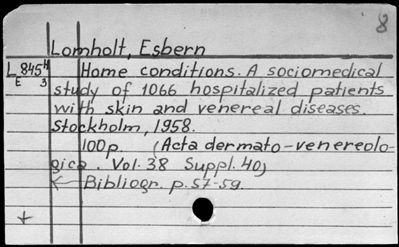 8
Lomholt, Esbern
L845h Home conditions. A sociomedical
E 3 study of 1066 hospitalized patients
with skin and venereal diseases.
Stockholm, 1958.
100p. (Acta dermato-venereolo-
gica. Vol. 38 Suppl. 40)
← Bibliogr. p. 57-59.
+